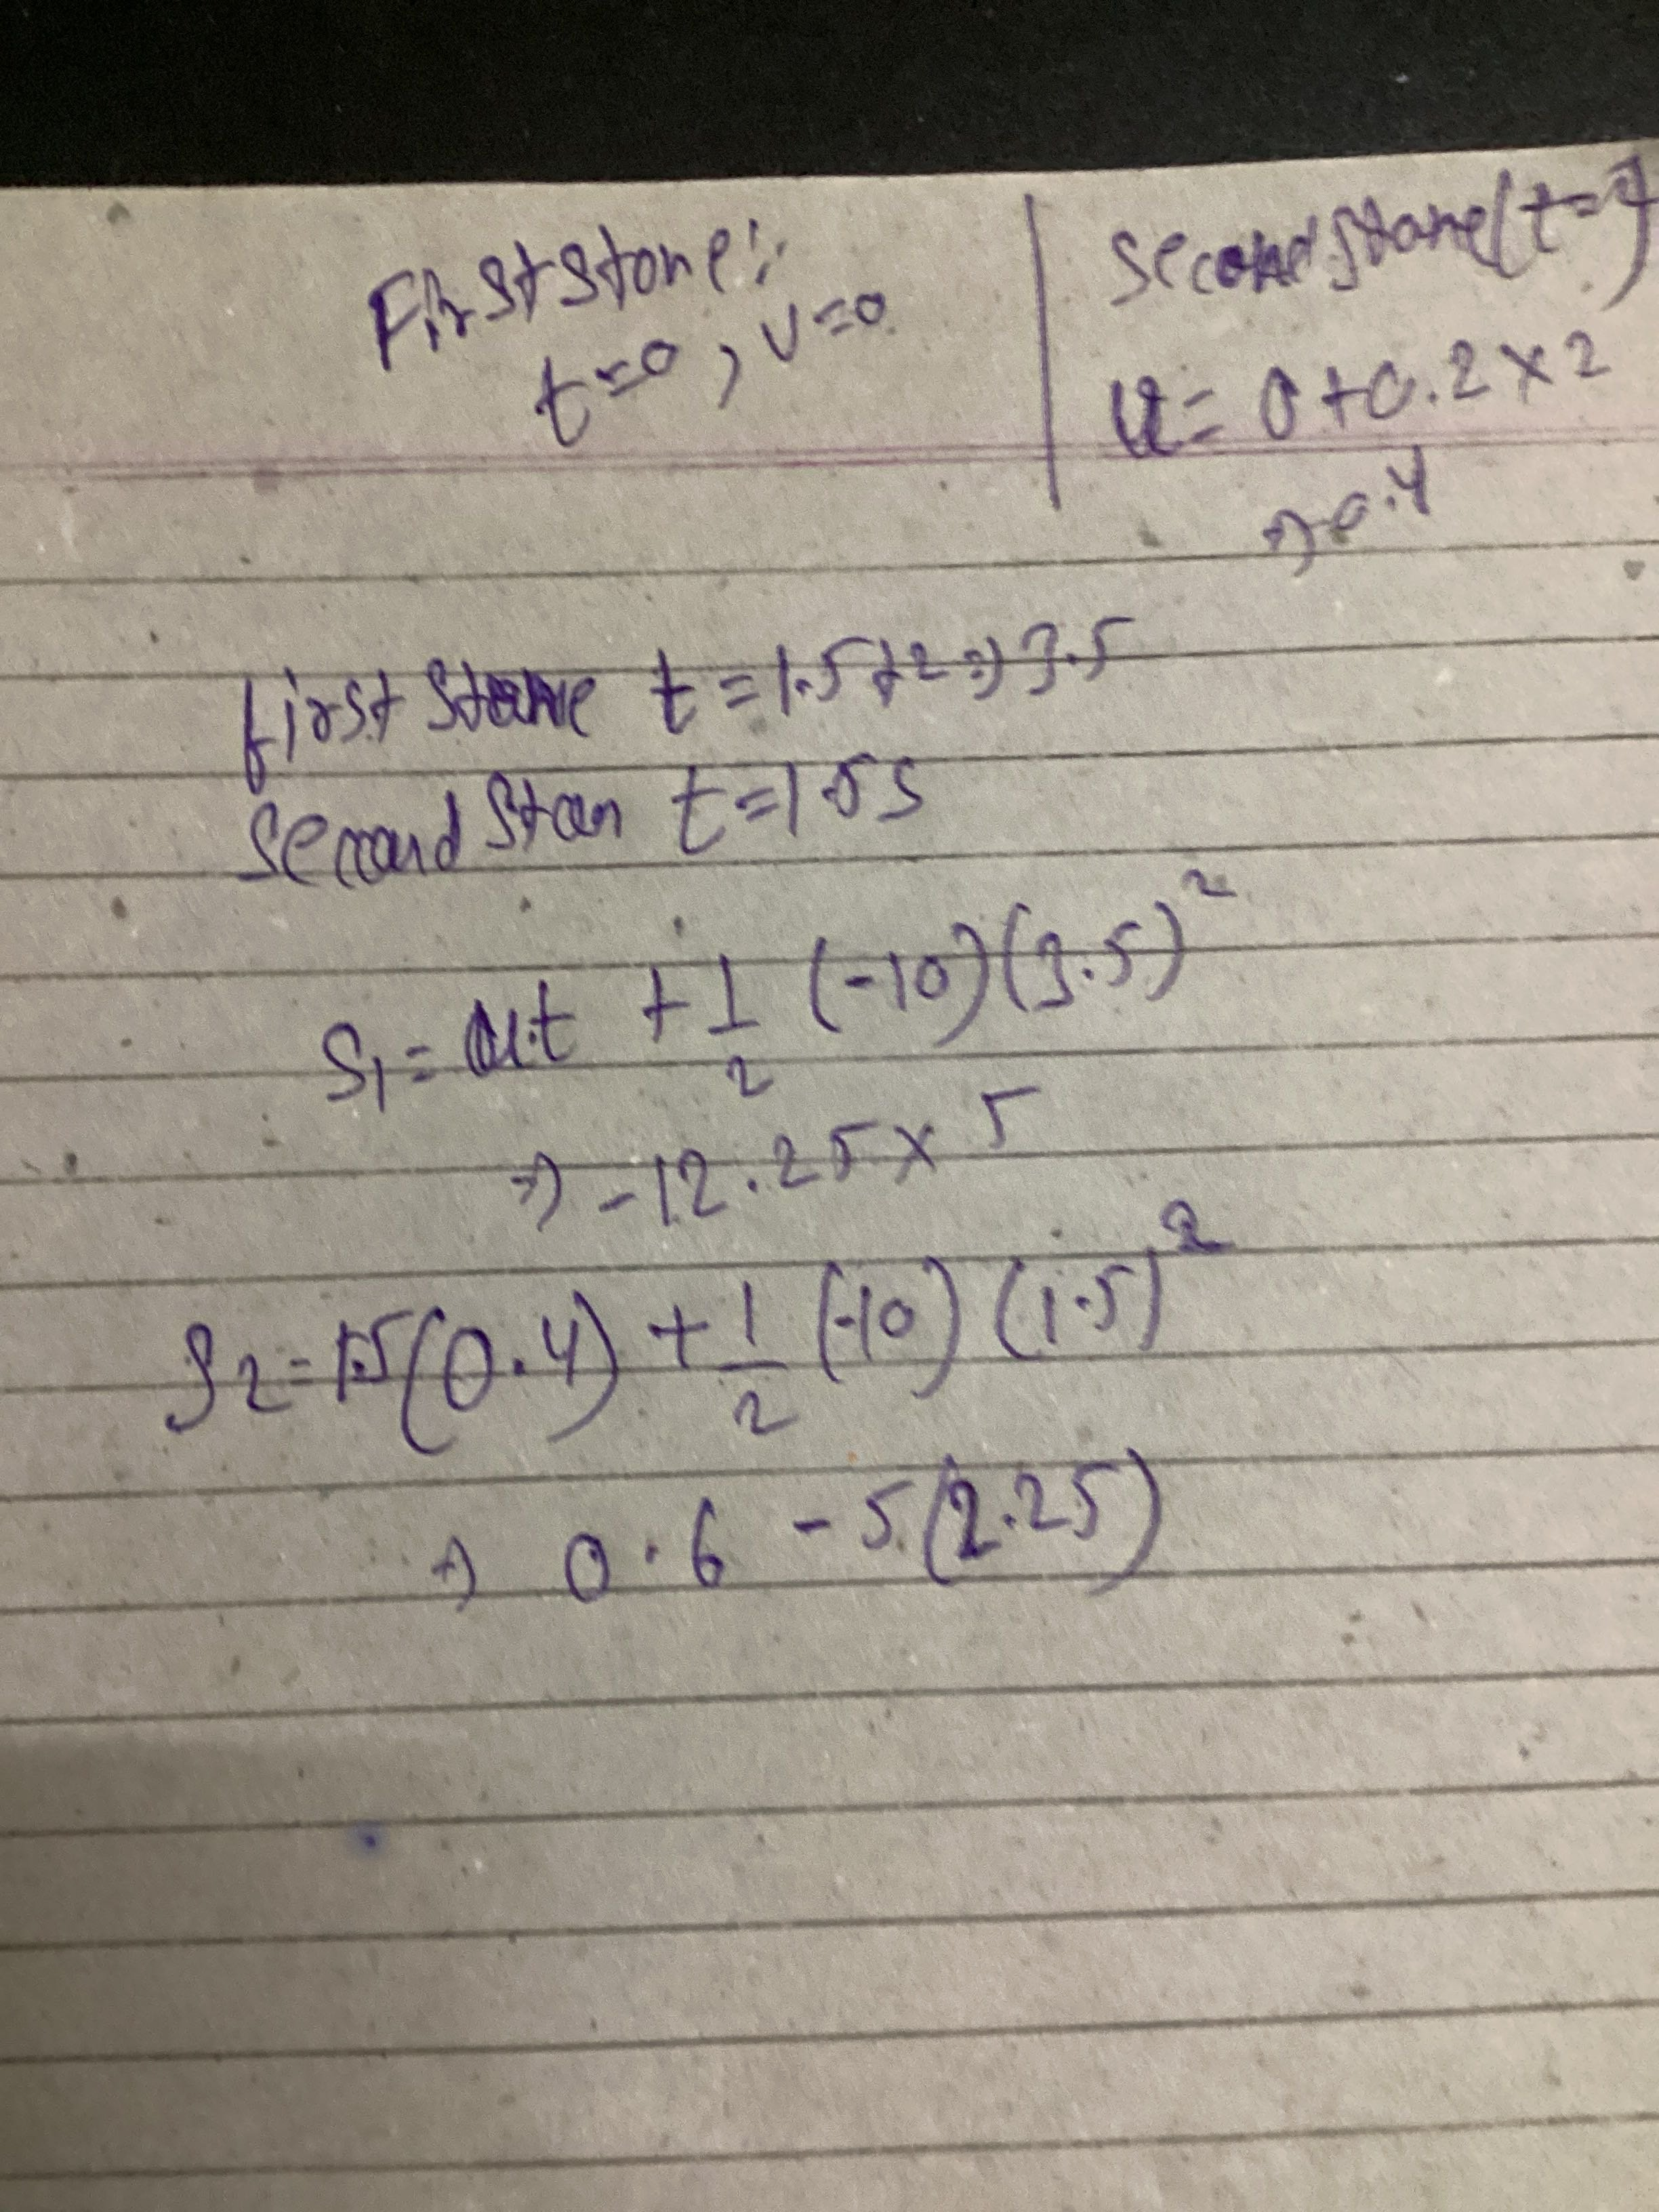 First stone:
t=0, v=0
Second stone (t=2)
u= 0+0.2×2
⇒0.4
first stone t=1.5+2⇒3.5
second ston t=1.5s
S₁= ut + 1/2 (-10)(3.5)²
⇒ -12.25×5
S₂= 1.5(0.4) + 1/2 (-10) (1.5)²
⇒ 0.6 - 5(2.25)